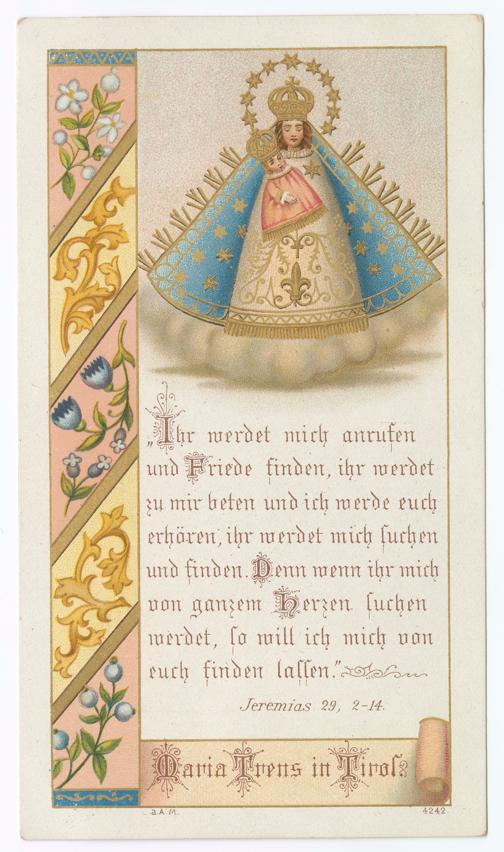 „Ihr werdet mich anrufen
und Friede finden, ihr werdet
zu mir beten und ich werde euch
erhören, ihr werdet mich suchen
und finden. Denn wenn ihr mich
von ganzem Herzen suchen
werdet, so will ich mich von
euch finden lassen.“
Jeremias 29, 2-14.
Maria Trens in Tirol.
B.A.M.
4242.